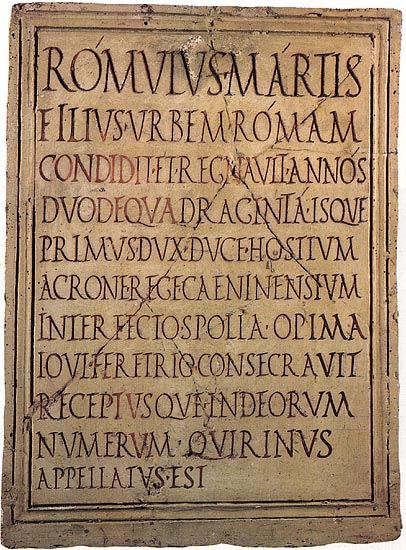 RÓMVLVS·MÁRTIS
FILIVS·VRBEM RÓMAM
CONDIDIT·ET·REGNAVIT·ANNÓS
DVODEQVADRAGINTÁ·ISQVE
PRIMVS DVX·DVCE HOSTIVM
ACRONE REGE CAENINENSIVM
INTERFECTO SPOLIA·OPIMA
IOVI·FERETRIO CONSECRAVIT
RECEPTVSQVE IN DEORVM
NVMERVM·QVIRINVS
APPELLATVS·EST